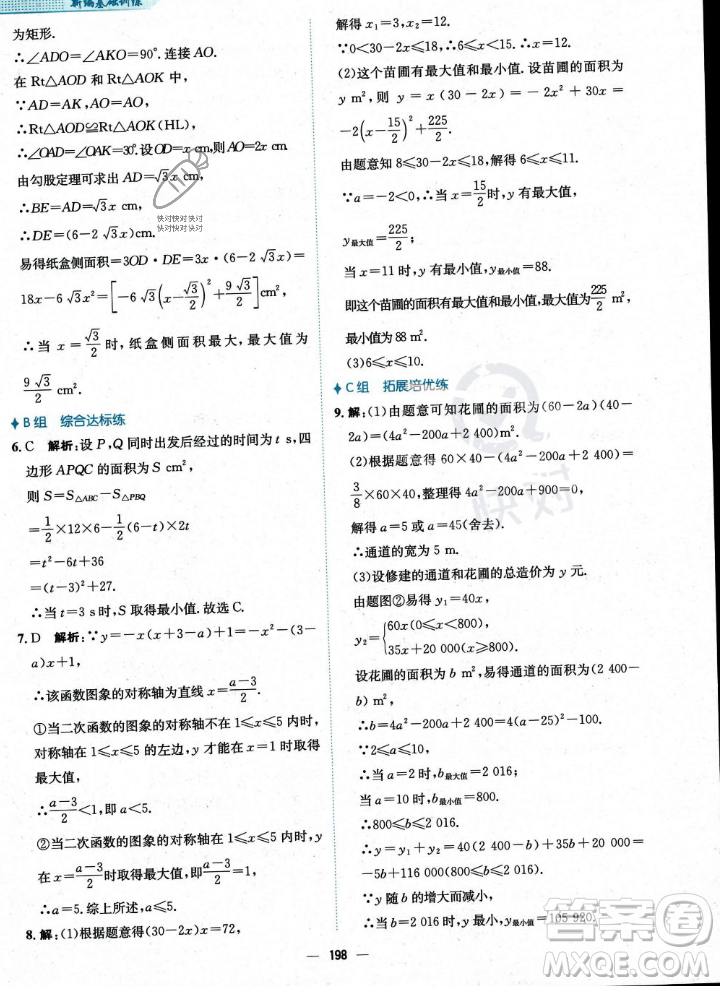 新编基础训练
为矩形.
∴∠ADO=∠AKO=90°.连接 AO.
在 Rt△AOD 和 Rt△AOK 中,
∵AD=AK,AO=AO,
∴Rt△AOD≌Rt△AOK(HL),
∴∠OAD=∠OAK=30°.设 OD=x,则 AO=2x cm.
由勾股定理可求出 AD=√3x cm,
∴BE=AD=√3x cm,
∴DE=(6-2√3x)cm,
易得纸盒侧面积=3OD·DE=3x·(6-2√3x)=
18x-6√3x²=[-6√3(x-√3/2)²+9√3/2]cm²,
∴当 x=√3/2时,纸盒侧面积最大,最大值为
9√3/2 cm².
B组 综合达标练
6.C 解析:设 P,Q 同时出发后经过的时间为 t s,四
边形 APQC 的面积为 S cm²,
则 S=S△ABC-S△PBQ
=1/2×12×6-1/2(6-t)×2t
=t²-6t+36
=(t-3)²+27.
∴当 t=3 s时,S 取得最小值.故选 C.
7.D 解析:∵y=-x(x+3-a)+1=-x²-(3-
a)x+1,
∴该函数图象的对称轴为直线 x=(a-3)/2.
①当二次函数的图象的对称轴不在 1≤x≤5 内时,
对称轴在 1≤x≤5 的左边,y 才能在 x=1 时取得
最大值,
∴(a-3)/2<1,即 a<5.
②当二次函数的图象的对称轴在 1≤x≤5 内时,y
在 x=(a-3)/2时取得最大值,即(a-3)/2=1.
∴a=5.综上所述,a≤5.
8.解:(1)根据题意得(30-2x)x=72,
解得 x₁=3,x₂=12.
∵0<30-2x≤18,∴6≤x<15,∴x=12.
(2)这个苗圃有最大值和最小值.设苗圃的面积为
y m²,则 y=x(30-2x)=-2x²+30x=
-2(x-15/2)²+225/2.
由题意知 8≤30-2x≤18,解得 6≤x≤11.
∵a=-2<0,∴当 x=15/2时,y 有最大值,
y最大值=225/2;
当 x=11 时,y 有最小值,y最小值=88.
即这个苗圃的面积有最大值和最小值,最大值为225/2 m²,
最小值为 88 m².
(3)6≤x≤10.
C组 拓展培优练
9.解:(1)由题意可知花圃的面积为(60-2a)(40-
2a)=(4a²-200a+2 400)m².
(2)根据题意得 60×40-(4a²-200a+2 400)=
3/8×60×40,整理得 4a²-200a+900=0,
解得 a=5 或 a=45(舍去).
∴通道的宽为 5 m.
(3)设修建的通道和花圃的总造价为 y 元.
由题图②易得 y₁=40x,
y₂={60x(0≤x≤800),
35x+20 000(x>800).
设花圃的面积为 b m²,易得花圃的面积为(4a²-200a+2 400)
m²,
∴b=4a²-200a+2 400=4(a-25)²-100.
∵2≤a≤10,
∴当 a=2 时,b最大值=2 016;
当 a=10 时,b最小值=800.
∴800≤b≤2 016.
∴y=y₁+y₂=40(2 400-b)+35b+20 000=
-5b+116 000(800≤b≤2 016).
∵y 随 b 的增大而减小,
∴当 b=2 016 时,y 最小,最小值=105 920.
198
快对快对快对
快对快对快对
快对
答案圈